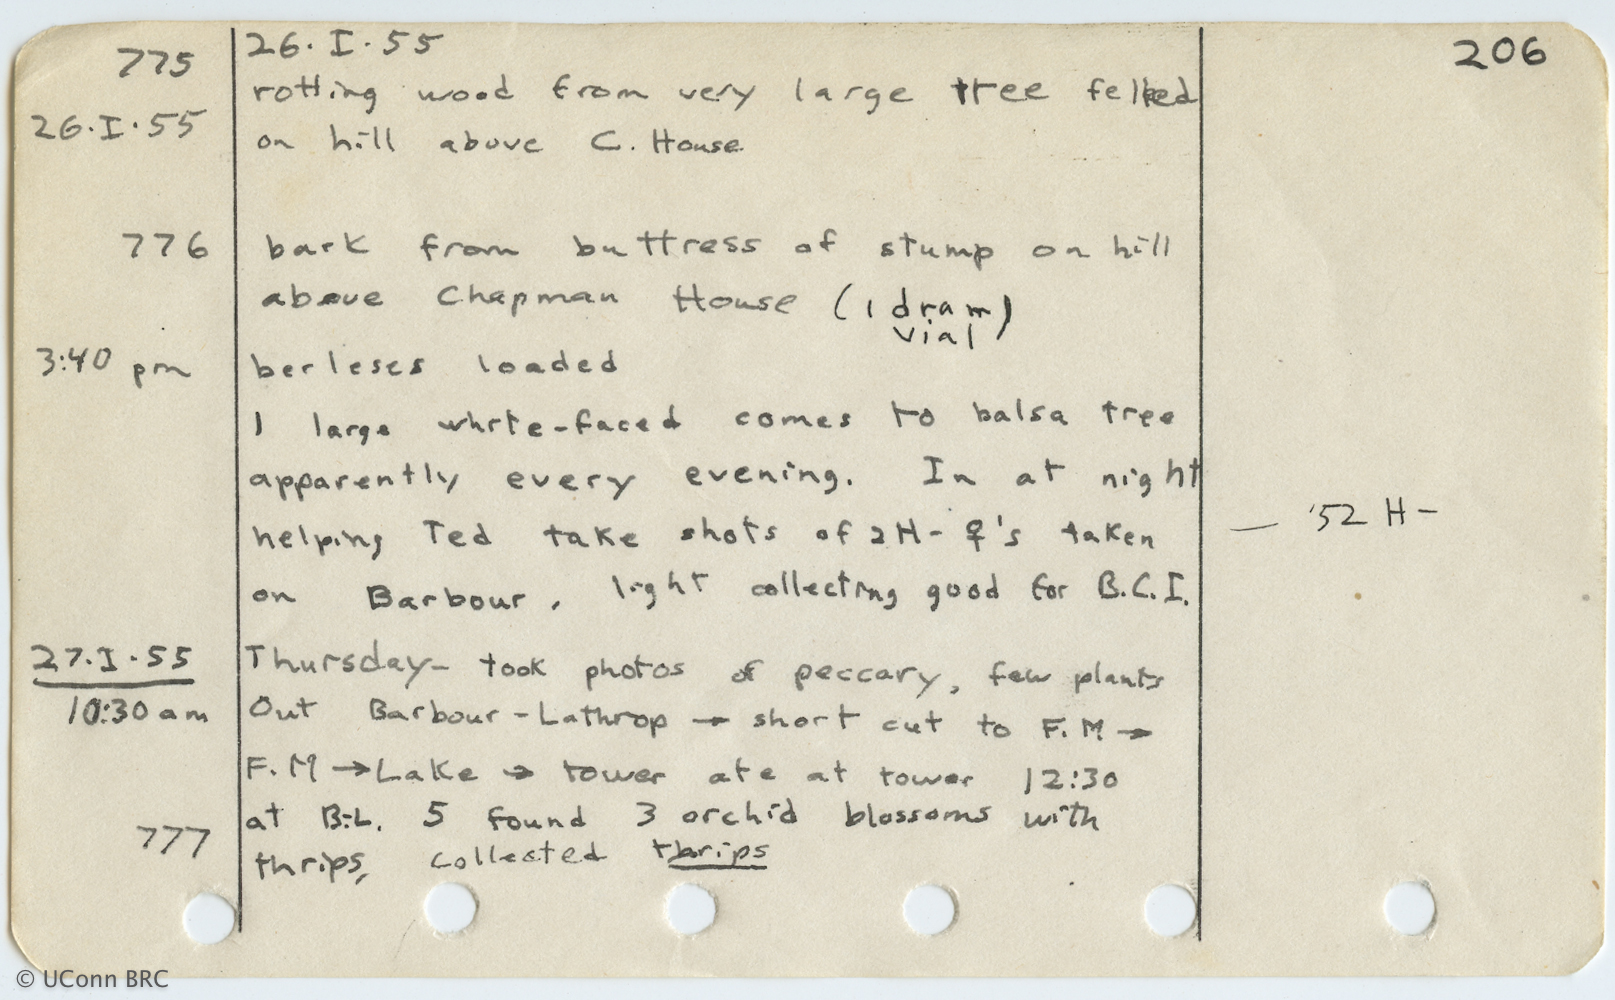 206
775 26.I.55
26.I.55 rotting wood from very large tree felled
on hill above C. House
776 bark from buttress of stump on hill
above Chapman House (1 dram
vial)
3:40 pm berleses loaded
1 large white-faced comes to balsa tree
apparently every evening. In at night
helping Ted take shots of 2H-♀'s taken — '52 H-
on Barbour, light collecting good for B.C.I.
27.I.55 Thursday- took photos of peccary, few plants
10:30 am Out Barbour-Lathrop → short cut to F.M →
F.M → Lake → tower ate at tower 12:30
777 at B-L. 5 found 3 orchid blossoms with
thrips, collected thrips
© UConn BRC